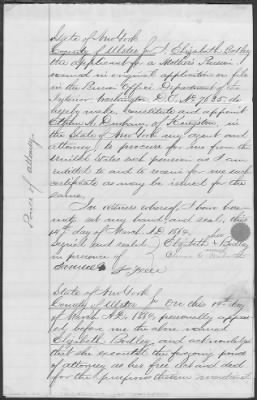 State of New York
County of Ulster I, Elizabeth Bodley
the applicant for a Mother's Pension
named in original application on file
in the Pension Office Department of the
Interior Washington D.C. No 7635 do
hereby make, constitute and appoint
of Kingston in
the State of New York my agent and
attorney, to procure for me from the
United States such pension as I am
entitled to and to receive for me such
certificate as may be issued for the
same.
In witness whereof, I have here
unto set my hand and seal, this
14th day of March AD 1864.
Signed and sealed Elizabeth x Bodley
in presence of
State of New York
County of Ulster On this 14th day
of March A.D. 1864, personally appea
red before me the above named
Elizabeth Bodley, and acknowledged
that she executed the foregoing power
of attorney as her free act and deed
for the purposes therein mentioned
Power of attorney.